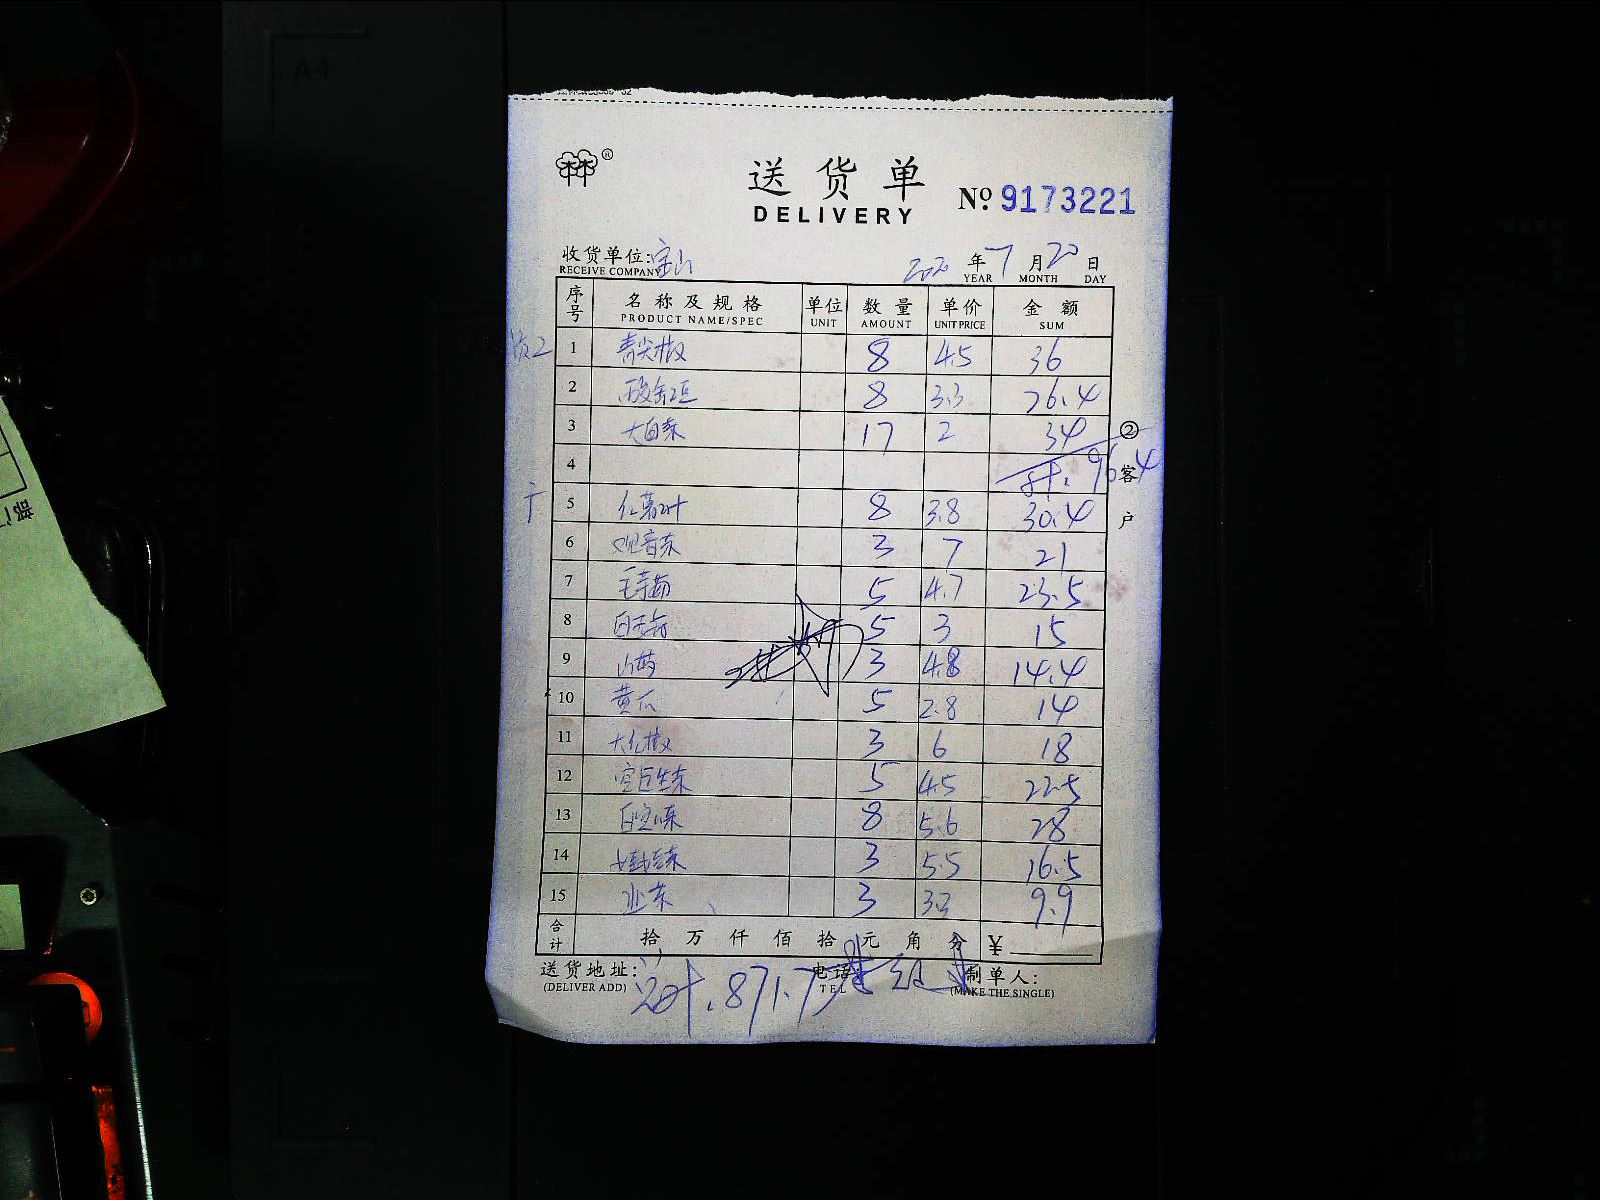 送货单
DELIVERY
№ 9173221
收货单位: 宝山
RECEIVE COMPANY
2020 年 7 月 20 日
YEAR MONTH DAY
序号 名称及规格 单位 数量 单价 金额
PRODUCT NAME/SPEC UNIT AMOUNT UNIT PRICE SUM
1 青尖椒 8 4.5 36
2 8 3.3 26.4
3 大白菜 17 2 34
4 计. 96.4
5 红薯叶 8 3.8 30.4
6 观音菜 3 7 21
7 毛芋苗 5 4.7 23.5
8 5 3 15
9 山药 3 4.8 14.4
10 黄瓜 5 2.8 14
11 大红椒 3 6 18
12 5 4.5 22.5
13 8 5.6 28
14 3 5.5 16.5
15 3 3.3 9.9
②客户
合计 拾 万 仟 佰 拾 元 角 分 ¥
送货地址: 电话 制单人:
(DELIVER ADD) TEL (MAKE THE SINGLE)
总计. 871.7